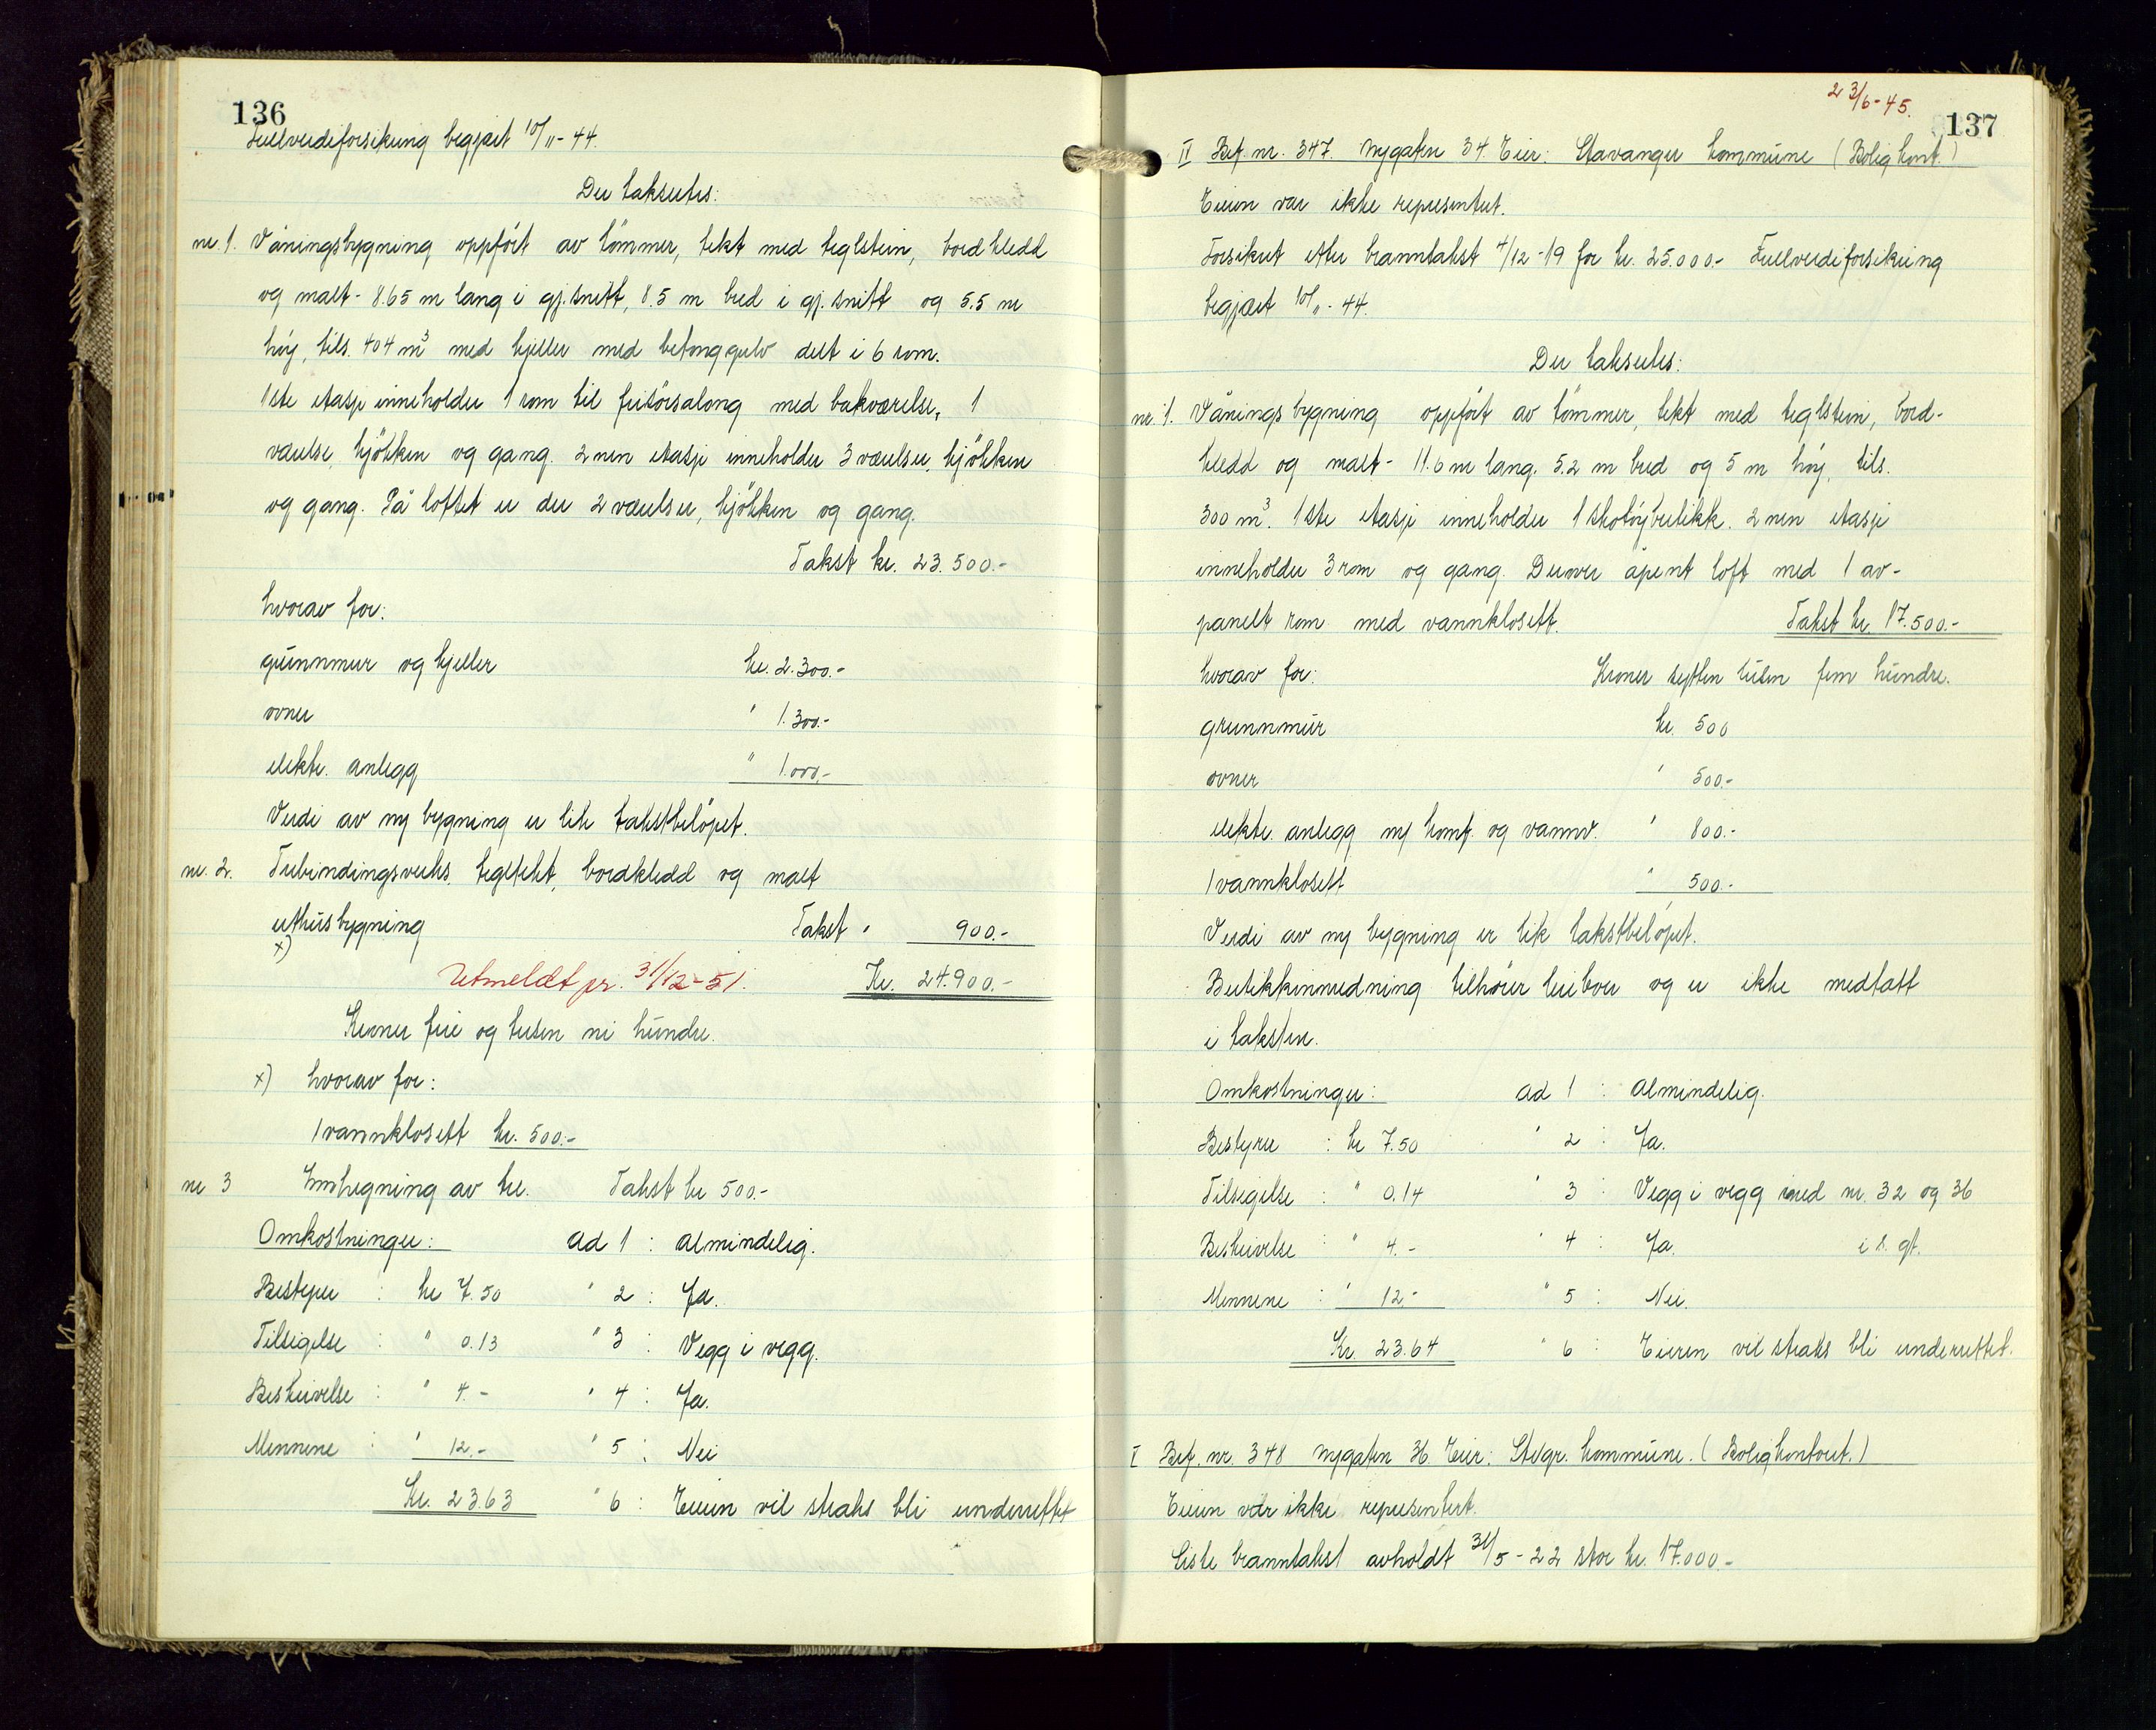 136
Fullverdiforsikring begjært 10/11-44.
Der takseres:
nr. 1. Våningsbygning oppført av tømmer, tekt med teglstein, bordkledd
og malt - 8.65 m lang i gj.snitt, 8.5 m bred i gj.snitt og 5.5 m
høy, tils. 404 m³ med kjeller med betonggulv delt i 6 rom.
1ste etasje inneholder 1 rom til frisørsalong med bakværelse, 1
værelse, kjøkken og gang. 2nen etasje inneholder 3 værelser, kjøkken
og gang. På loftet er der 2 værelser, kjøkken og gang.
Takst kr. 23.500.-
hvorav for:
grunnmur og kjeller kr. 2.300.-
ovner " 1.300.-
elektr. anlegg " 1.000.-
Verdi av ny bygning er lik takstbeløpet.
nr. 2. Utbindingsverks, teglteket, bordkledd og malt
uthusbygning Takst " 900.-
x)
Utmeldt pr. 31/12-51. Kr. 24.900.-
Kroner fire og tusen ni hundre.
x) hvorav for:
1 vannklosett kr. 500.-
nr 3 Innhegning av tre. Takst kr 500.-
Omkostninger: ad 1 : Almindelig.
Bestyrer : kr 7.50 " 2 : Ja.
Tilsigelse : " 0.13 " 3 : Vegg i vegg.
Beskrivelse : " 4.- " 4 : Ja.
Mennene : " 12.- " 5 : Nei
Kr. 23.63 " 6 : Eieren vil straks bli underrettet
23/6-45.
137
II Bef. nr. 347. Nygaten 34. Eier: Stavanger kommune (Boligkont.)
Eieren var ikke representert.
Forsikret etter branntakst 4/12-19 for kr. 25.000.- Fullverdiforsikring
begjært 10/11-44.
Der takseres:
nr. 1. Våningsbygning oppført av tømmer, tekt med teglstein, bord-
kledd og malt - 11.6 m lang, 5.2 m bred og 5 m høy, tils.
300 m³. 1ste etasje inneholder 1 skotøybutikk. 2nen etasje
inneholder 3 rom og gang. Derover åpent loft med 1 av-
panelt rom med vannklosett. Takst kr. 17.500.-
hvorav for: Kroner sytten tusen fem hundre.
grunnmur kr. 500
ovner " 500.-
elektr. anlegg m/ komf. og vannv. " 800.-
1 vannklosett " 500.-
Verdi av ny bygning er lik takstbeløpet.
Butikkinnredning tilhører leiboer og er ikke medtatt
i taksten.
Omkostninger: ad 1 : Almindelig.
Bestyrer : kr 7.50 " 2 : Ja.
Tilsigelse : " 0.14 " 3 : Vegg i vegg med nr. 32 og 36
Beskrivelse : " 4.- " 4 : Ja. i s. gt.
Mennene : " 12.- " 5 : Nei.
Kr. 23.64 " 6 : Eieren vil straks bli underrettet.
I Bef. nr. 348 Nygaten 36. Eier: Stvgr. kommune. (Boligkontoret.)
Eieren var ikke representert.
Siste branntakst avholdt 31/5-22 stor kr. 17.000.-